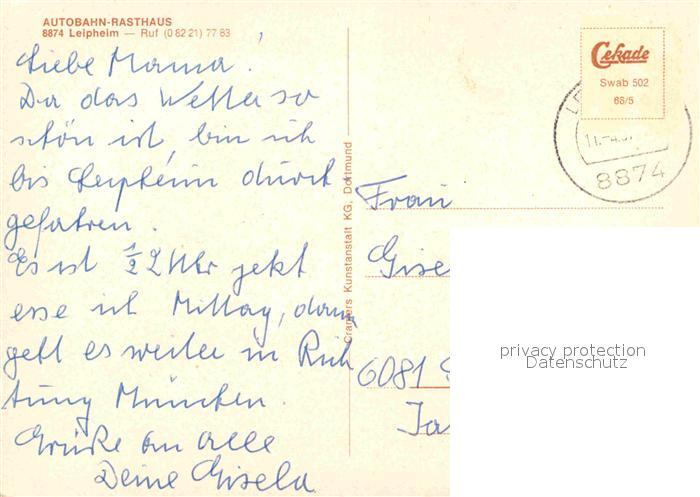 AUTOBAHN-RASTHAUS
8874 Leipheim — Ruf (0 82 21) 77 83
Liebe Mama!
Da das Wetter so
schön ist, bin ich
bis Leipheim durch
gefahren.
Es ist ½2 Uhr jetzt
esse ich Mittag, dann
geht es weiter in Rich
tung München.
Grüße an alle
Deine Gisela
Cramers Kunstanstalt KG, Dortmund
Cekade
Swab 502
68/5
8874
Frau
Gise
6081
privacy protection
Datenschutz